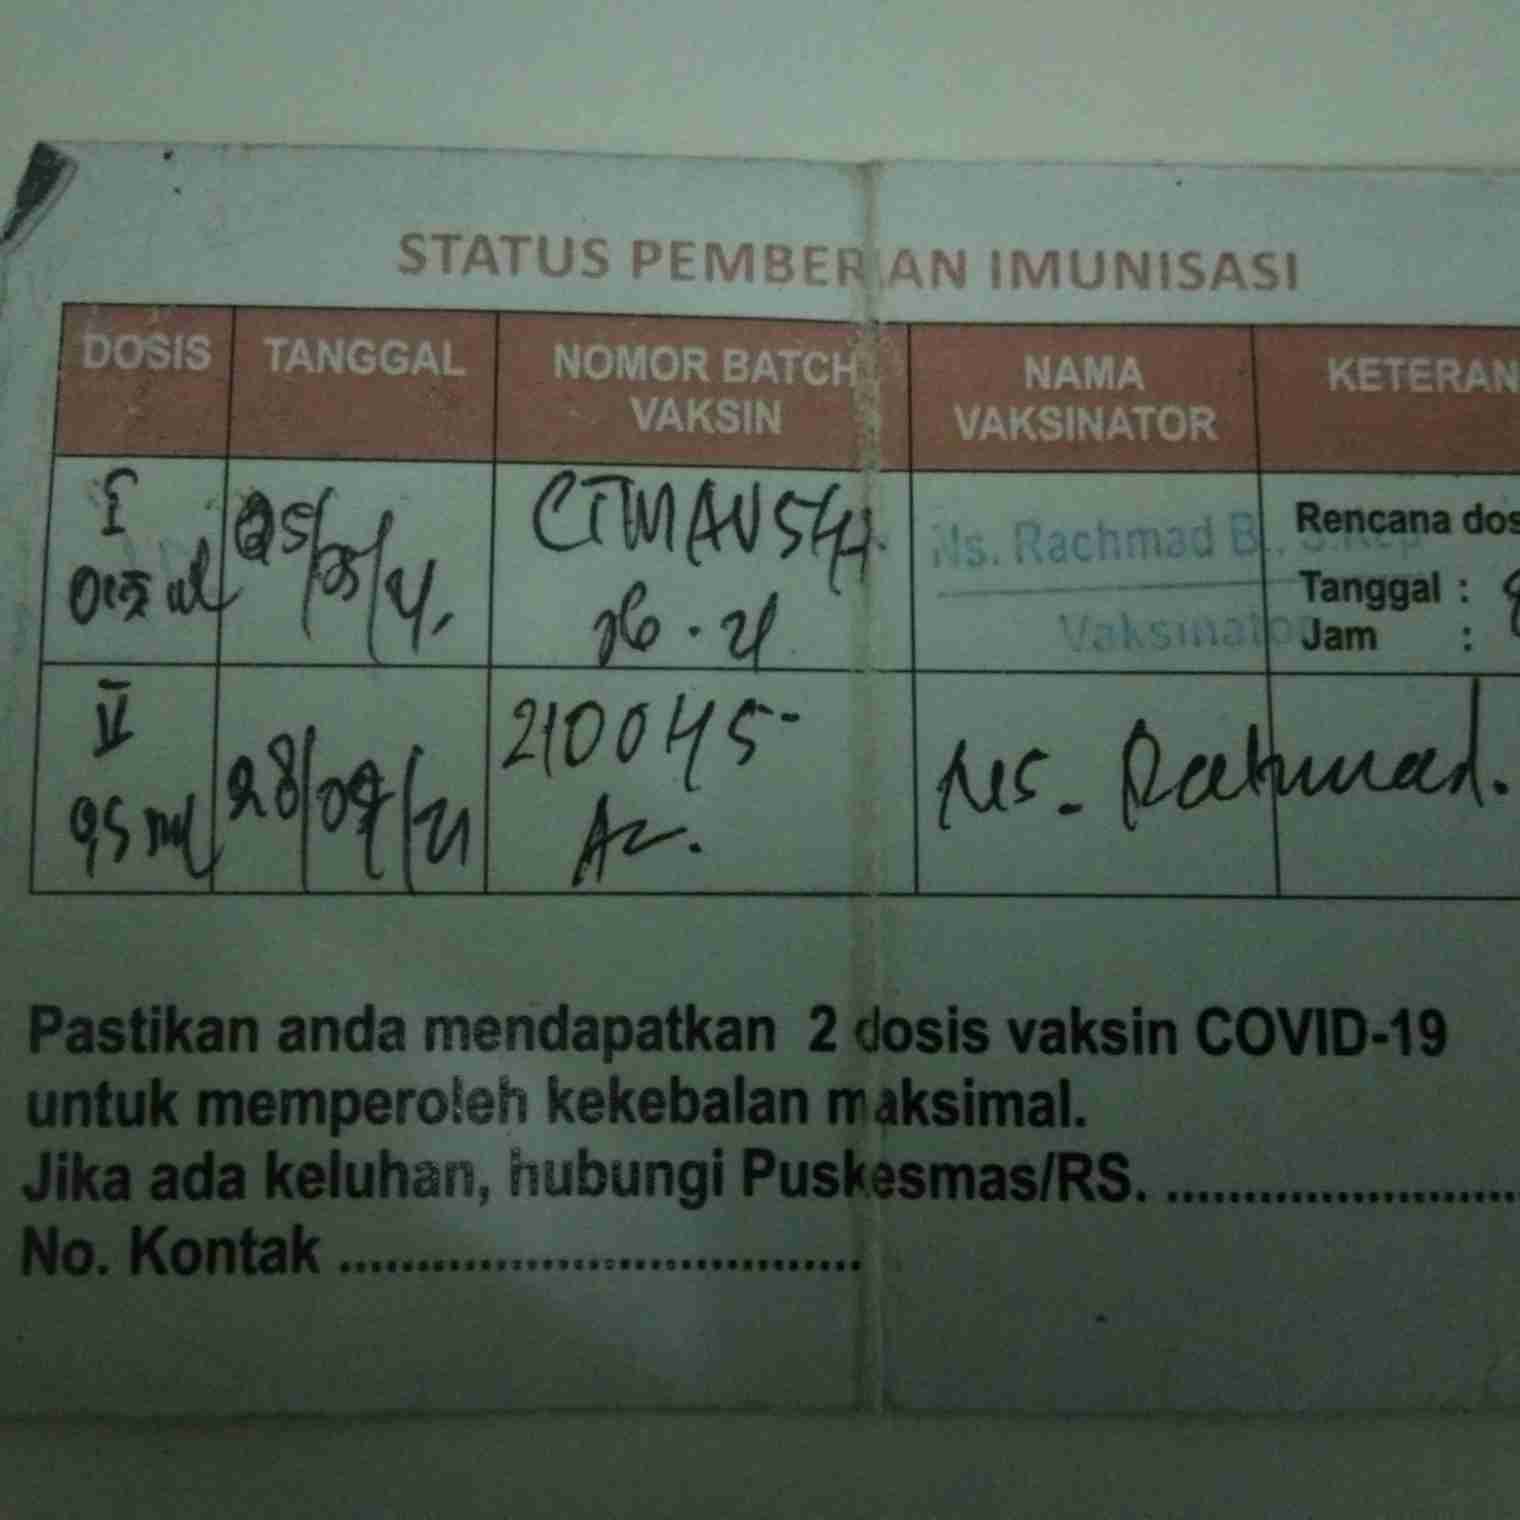 STATUS PEMBERIAN IMUNISASI
DOSIS TANGGAL NOMOR BATCH VAKSIN NAMA VAKSINATOR KETERAN
I
CTMAV544
Ns. Rachmad B., S.Kep
Vaksinator
Rencana dos
Tanggal :
Jam :
II
95 ml
28/07/21
210045-
Az.
Ns. Rahmad.
Pastikan anda mendapatkan 2 dosis vaksin COVID-19
untuk memperoleh kekebalan maksimal.
Jika ada keluhan, hubungi Puskesmas/RS. ........................
No. Kontak ...................................